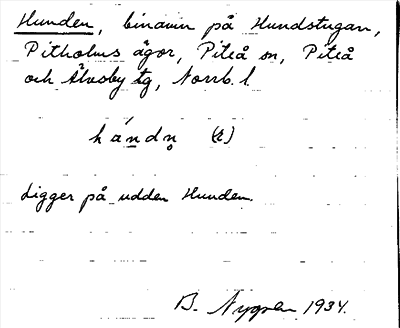 Hunden, binamn på Hundstugan,
Pitholms ägor, Piteå sn, Piteå
och Älvsby tg, Norrb. l.
hándn̥ (r)
Ligger på udden Hunden.
B. Nygren 1934.